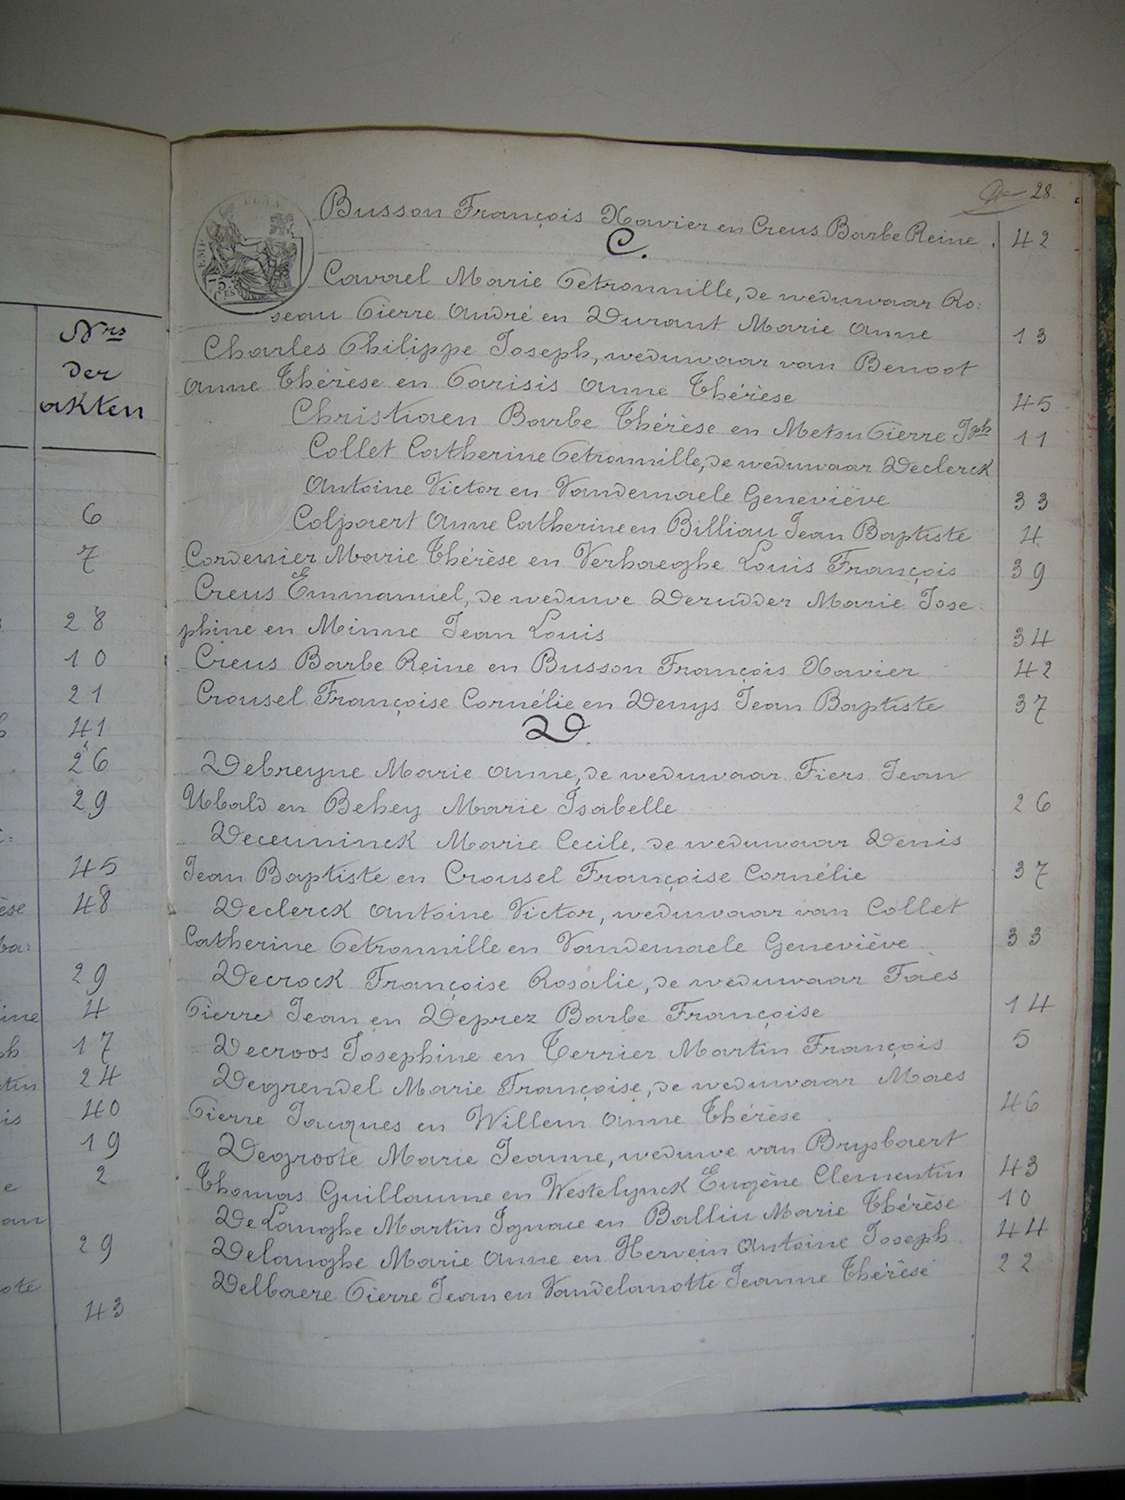 Nrs
der
akten
6
7
28
10
21
41
26
29
45
48
29
4
17
24
40
19
2
29
43
28.
Busson François Xavier en Creus Barbe Reine. 42
C.
Cavael Marie Petronnille, de weduwaar Ro:
seau Pierre André en Durant Marie Anne 13
Charles Philippe Joseph, weduwaar van Benoot
Anne Thérèse en Parisis Anne Thérèse 45
Christiaen Barbe Thérèse en Metsu Pierre Jph 11
Collet Catherine Petronnille, de weduwaar Declerck
Antoine Victor en Vandemaele Geneviève 33
Colpaert Anne Catherine en Billiau Jean Baptiste 4
Cordenier Marie Thérèse en Verhaeghe Louis François 39
Creus Emmanuel, de weduwe Derudder Marie Jose
phine en Minne Jean Louis 34
Creus Barbe Reine en Busson François Xavier 42
Crousel Françoise Cornélie en Denys Jean Baptiste 37
D.
Debreyne Marie Anne, de weduwaar Fiers Jean
Ubald en Behey Marie Isabelle 26
Deceuninck Marie Cecile, de weduwaar Denis
Jean Baptiste en Crousel Françoise Cornélie 37
Declerck Antoine Victor, weduwaar van Collet
Catherine Petronnille en Vandemaele Geneviève 33
Decrock Françoise Rosalie, de weduwaar Faes
Pierre Jean en Deprez Barbe Françoise 14
Decroos Josephine en Terrier Martin François 5
Degrendel Marie Françoise, de weduwaar Maes
Pierre Jacques en Willem Anne Thérèse 46
Degroote Marie Jeanne, weduwe van Brysbaert
Thomas Guillaume en Westelynck Eugène Clementin 43
De Langhe Martin Ignace en Balliu Marie Thérèse 10
Delanghe Marie Anne en Hervein Antoine Joseph 44
Delbaere Pierre Jean en Vandelanotte Jeanne Thérèse 22